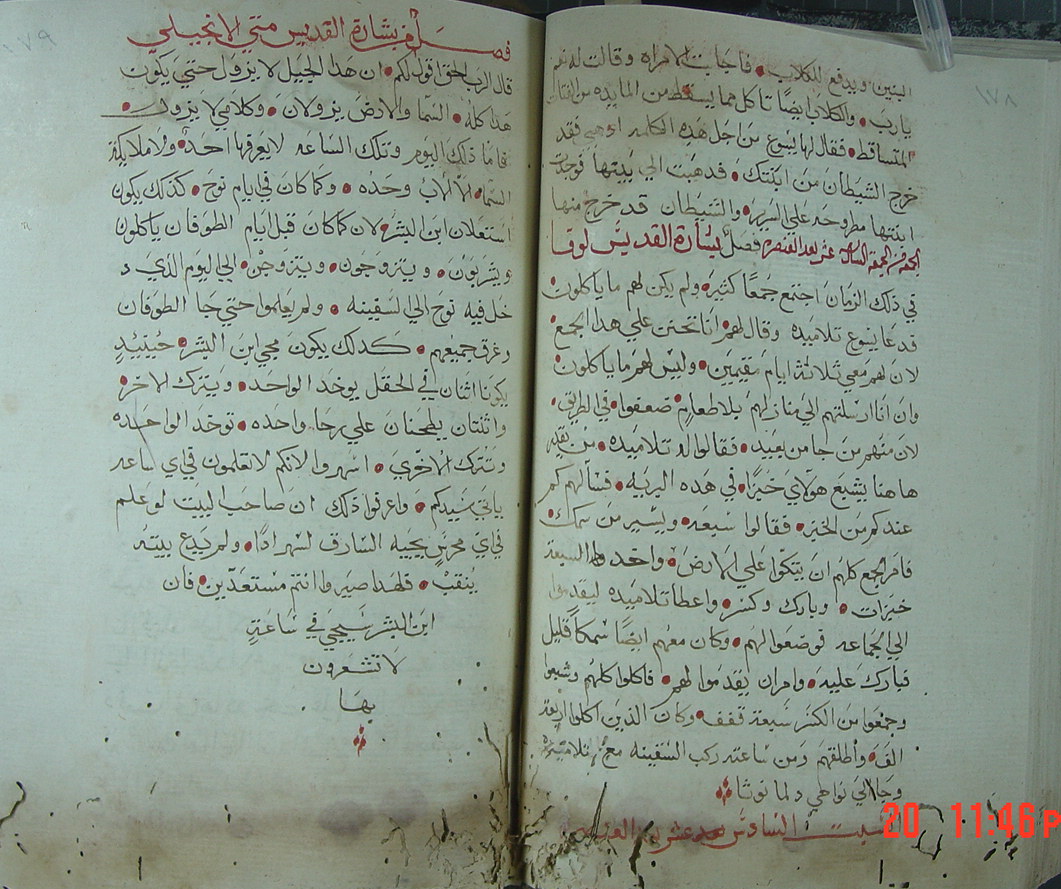 ١٧٨
البنين ويدفع للكلاب • فاجابت الامراه وقالت له نعم
يارب • والكلاب ايضًا تاكل مما يسقط من المايده من الفتات
المتساقط • فقال لها يسوع من اجل هذه الكلمه اذهبي فقد
خرج الشيطان من ابنتك • فدهبت الي بيتها فوجدت
ابنتها مطروحه علي السرير • والشيطان قد خرج منها
فصل بشارة القديس لوقا
في ذلك الزمان اجتمع جمعًا كثير • ولم يكن لهم ما ياكلون
فدعا يسوع تلاميده وقال لهم • انا تحنن علي هدا الجمع
لان لهم معي ثلاثة ايام مقيمين • وليس لهم ما ياكلون
وان انا ارسلتهم الي منازلهم بلا طعام • ضعفوا في الطريق •
لان منهم من جا من بعيد • فقالوا له تلاميده • من يقدر
هاهنا يشبع هولاي خبزًا • في هده البريه • فسالهم كم
عندكم من الخبز • فقالوا سبعه • ويسير من سمك •
فامر الجمع كلهم ان يتكوا علي الارض • واخد السبعة
خبزات • وبارك وكسر • واعطا تلاميده ليقدموا
الي الجماعه فوضعوا لهم • وكان معهم ايضًا سمكًا قليل
فبارك عليه • وامر ان يقدموا لهم • فاكلوا كلهم وشبعوا
وجمعوا من الكسر سبعة قفف • وكان الدين اكلوا اربعة
الف • واطلقهم ومن ساعته ركب السفينه مع تلاميده
وجا الي نواحي دلمانوثا
السبت السادس عشر بعد العنصره
فصل من بشارة القديس متي الانجيلي
قال الرب الحق اقول لكم • ان هدا الجيل لا يزول حتي يكون
هدا كله • السما والارض يزولان • وكلامي لا يزول •
فاما ذلك اليوم وتلك الساعه لا يعرفها احد • ولا ملايكة
السما • الا الاب وحده • وكما كان في ايام نوح • كدلك يكون
استعلان ابن البشر • لان كما كان قبل ايام الطوفان ياكلون
ويشربون • ويتزوجون • ويتزوجن • الي اليوم الذي د
خل فيه نوح الي السفينه • ولم يعلموا حتي جا الطوفان
وغرق جميعهم • كدلك يكون مجي ابن البشر • حينيدٍ
يكونا اثنان في الحقل يوخد الواحد • ويترك الاخر •
واثنتان يطحنان علي رحا واحده • توخد الواحده
وتترك الاخري • اسهروا لانكم لا تعلمون في اي ساعه
ياتي سيدكم • واعرفوا ذلك ان صاحب البيت لو علم
في اي محرس يجيه السارق لسهر ادًا • ولم يدع بيته
ينقب • فلهدا صيروا انتم مستعدين • فان
ابن البشر سيجي في ساعةٍ
لا تشعرون
بها
20 11:46 P